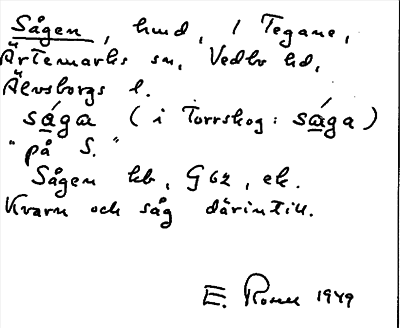 Sågen, hmd, i Tegane,
Ärtemarks sn, Vedbo hd,
Älvsborgs l.
såga (i Torrskog: såga)
"på S."
Sågen kb, G 62, ek.
Kvarn och såg därintill.
E. 1949